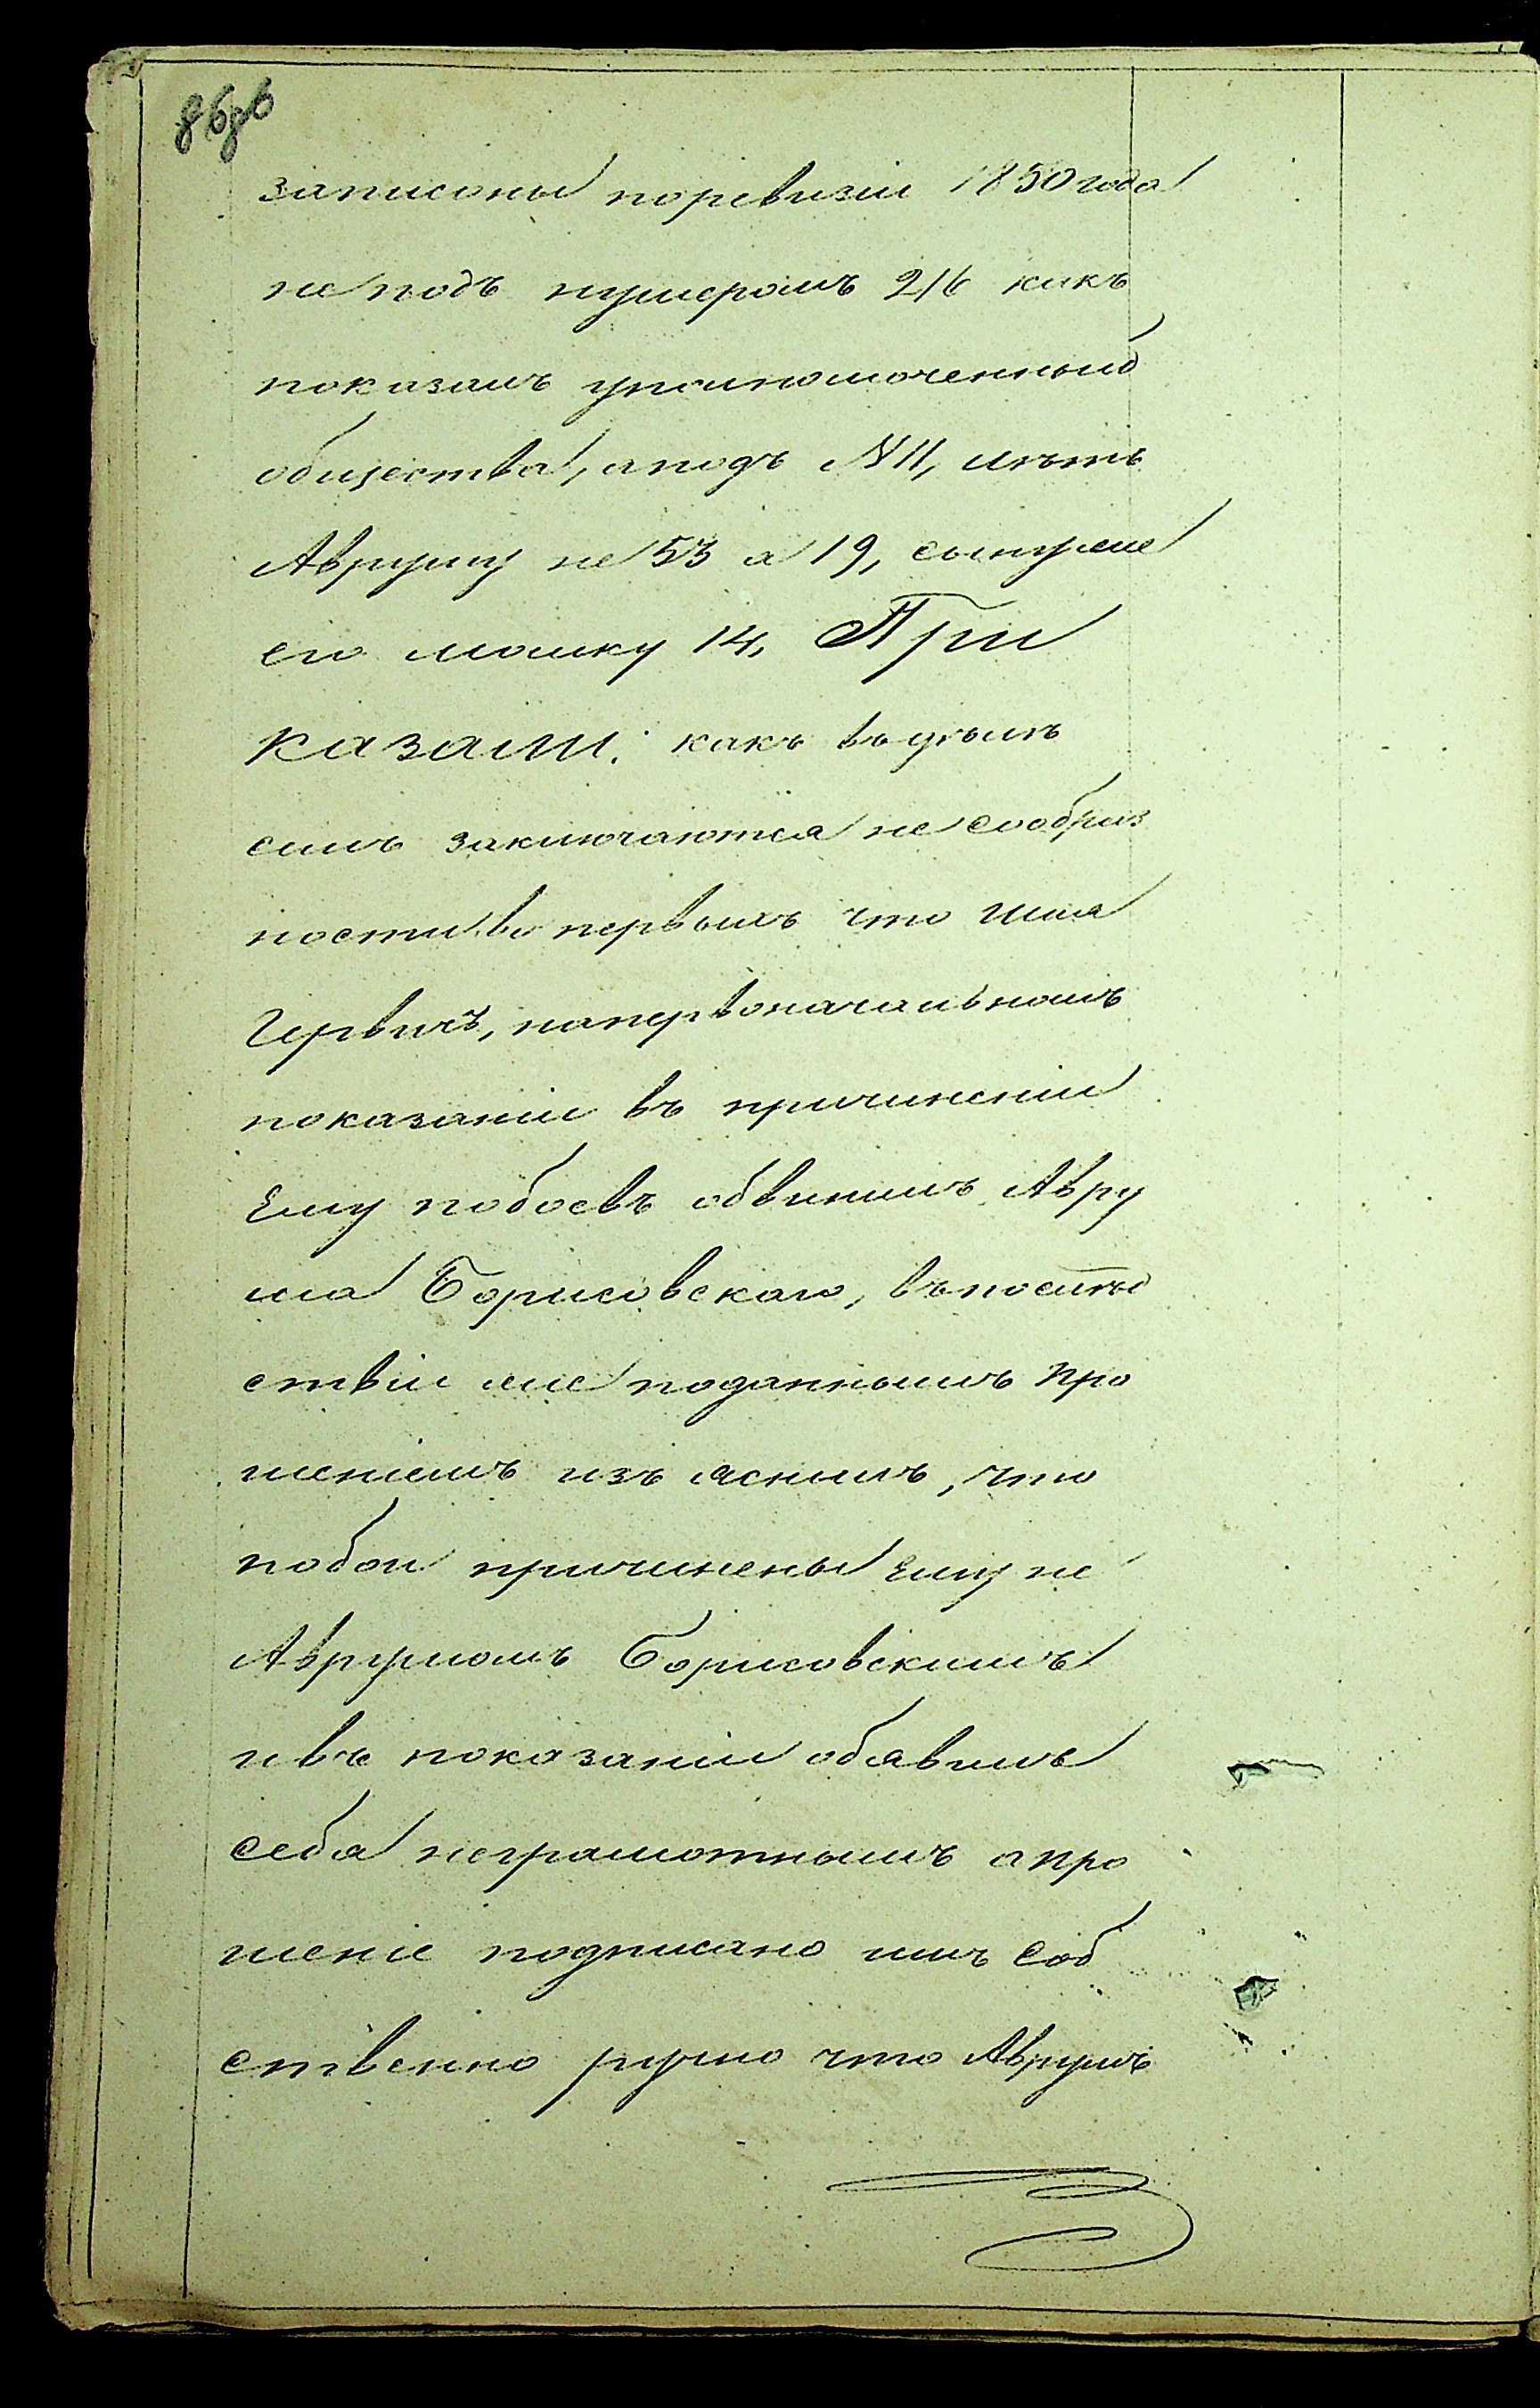 записаны поревизіи 1850 года
не подъ нумеромъ 216 какъ
показалъ уполномоченный
общества, а подъ №11, лѣтъ
Авруму не 53 а 19, сыну же
его мошку 14, При
казали: какъ въ дѣлѣ
семъ заключаются не сообраз
ности во первыхъ что
Гервичъ, напервоначальномъ
показаніи въ причиненіи
Ему побоевъ обвинилъ Авру
ма Борисовскаго, въ послѣд
ствіи же поданнымъ про
шеніемъ изъ яснилъ, что
побои причинены Ему не
Аврумомъ Борисовскимъ
и въ показаніи обявилъ
себя неграмотнымъ а про
шеніе подписано имъ Соб
ственно ручно что Аврумъ